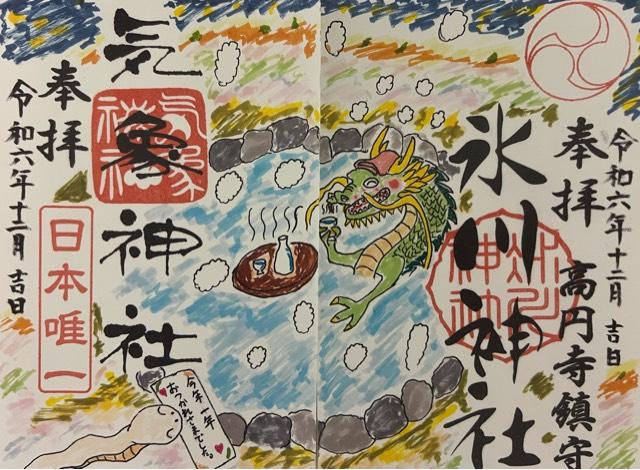 令和六年十二月 吉日
奉拝 高円寺鎮守
氷川神社
気象神社
氣象神社
奉拝
令和六年十二月 吉日
日本唯一
今年一年
おつかれさまでした。